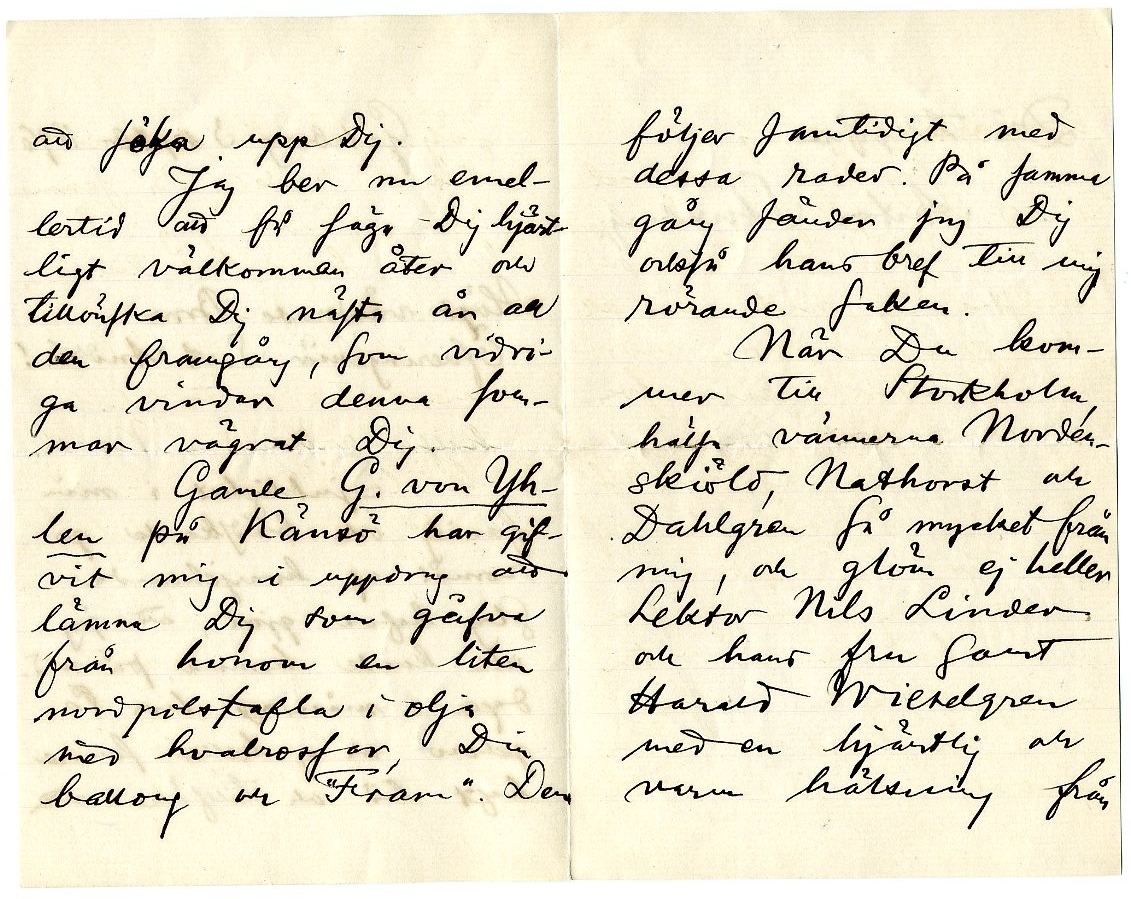 att söka upp Dig.
Jag ber nu emel-
lertid att få säga Dig hjärt-
ligt välkommen åter och
tillönska Dig nästa år all
den framgång, som vidri-
ga vindar denna som-
mar vägrat Dig.
Gamle G. von Yh-
len på Känsö har gif-
vit mig i uppdrag att
lämna Dig som gåfva
från honom en liten
nordpolstafla i olja
med hvalrossar, Din
ballong och "Fram". Den
följer samtidigt med
dessa rader. På samma
gång sänder jag Dig
också hans bref till mig
rörande saken.
När Du kom-
mer till Stockholm,
hälsa vännerna Norden-
skiöld, Nathorst och
Dahlgren så mycket från
mig, och glöm ej heller
Lektor Nils Linder
och hans fru samt
Harald Wieselgren
med en hjärtlig och
varm hälsning från